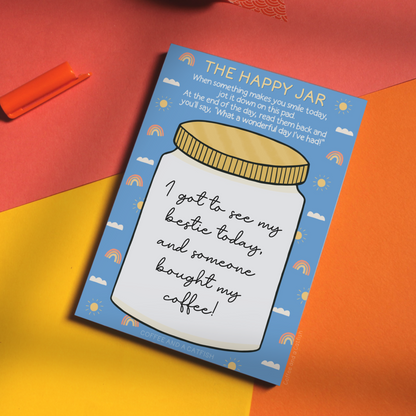 THE HAPPY JAR
When something makes you smile today,
jot it down on this pad.
At the end of the day, read them back and
you'll say, "What a wonderful day I've had!"
I got to see my
bestie today,
and someone
bought my
coffee!